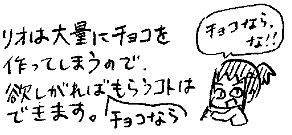 リオは大量にチョコを
作ってしまうので、
欲しがればもらうコトは
できます。
チョコなら
チョコなら、
な!!